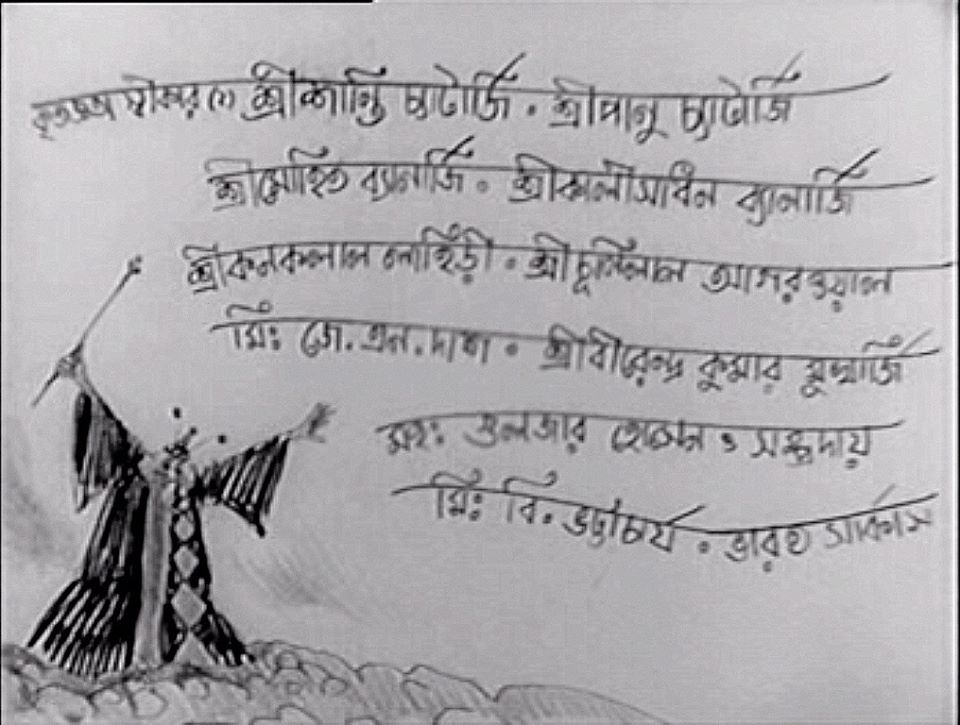 কৃতজ্ঞতা স্বীকার ঃ শ্রীশান্তি চ্যাটার্জি · শ্রীপানু চ্যাটার্জি
শ্রীমোহিত ব্যানার্জি · শ্রীকালীসাধন ব্যানার্জি
শ্রীকনকলাল লাহিড়ী · শ্রীচুনিলাল আগরওয়াল
মিঃ জে. এন. দাশ · শ্রীবীরেন্দ্র কুমার মুখার্জি
মহঃ গুলজার হোসেন ও সম্প্রদায়
মিঃ বি. ভট্টাচার্য · ভারত সার্কাস